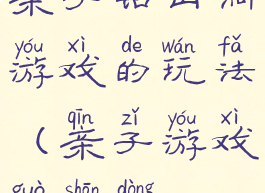 亲子钻山洞
yóu xì de wán fǎ
游戏的玩法
qīn zǐ yóu xì
(亲子游戏
guò shān dòng